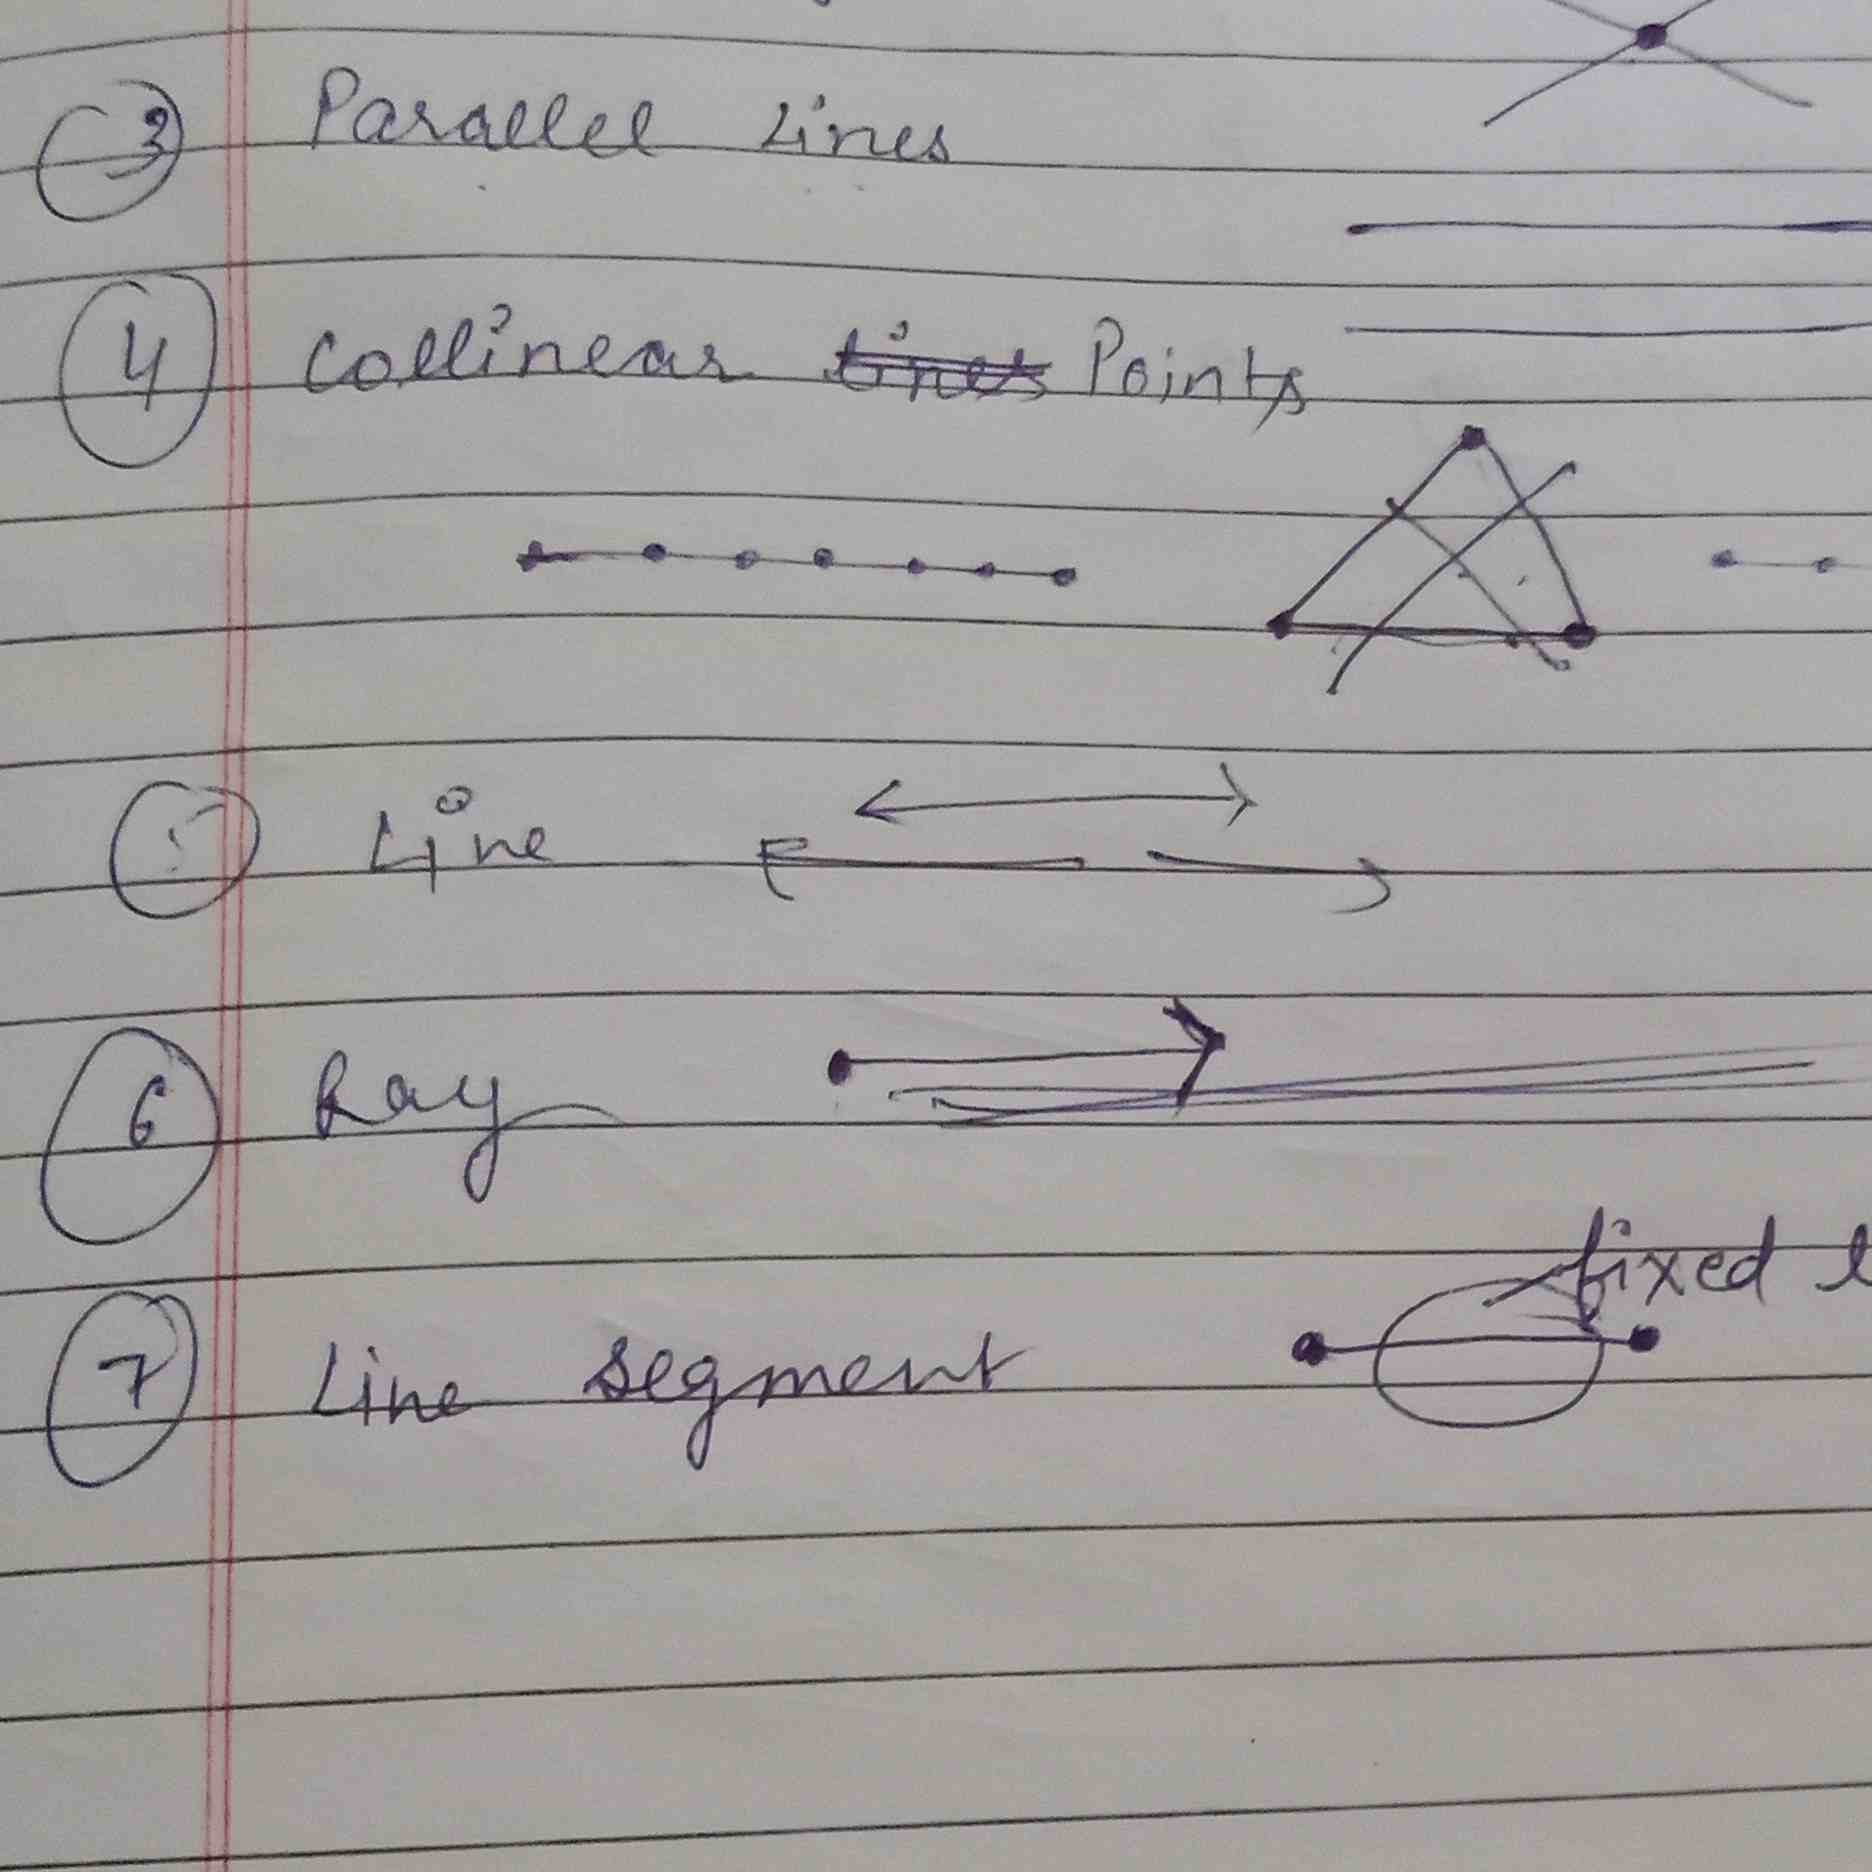 3 Parallel Lines
4 Collinear Lines Points
Line
6 Ray
fixed
7 Line segment